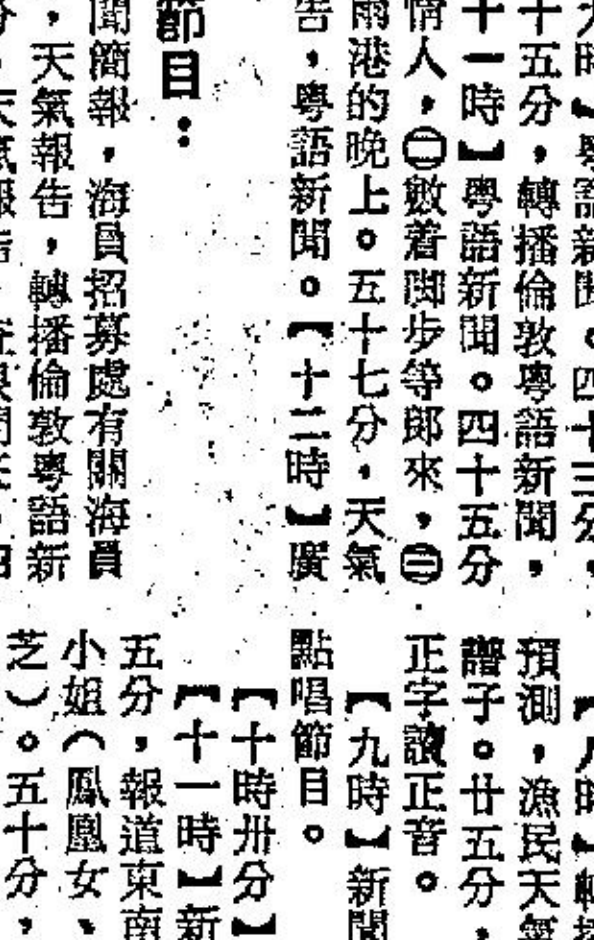 時】粵語新聞。四十三分,
十五分,轉播倫敦粵語新聞,
十一時】粵語新聞。四十五分
情人,㊁數着脚步等郎來,㊂
雨港的晚上。五十七分,天氣
告,粵語新聞。【十二時】廣
節目:
聞簡報,海員招募處有關海員
,天氣報告,轉播倫敦粵語新
天氣報告,
預測,漁民天氣
譜子。廿五分,
正字讀正音。
【九時】新聞
點唱節目。
【十時卅分】
【十一時】新
五分,報道東南
小姐(鳳凰女、
芝)。五十分,